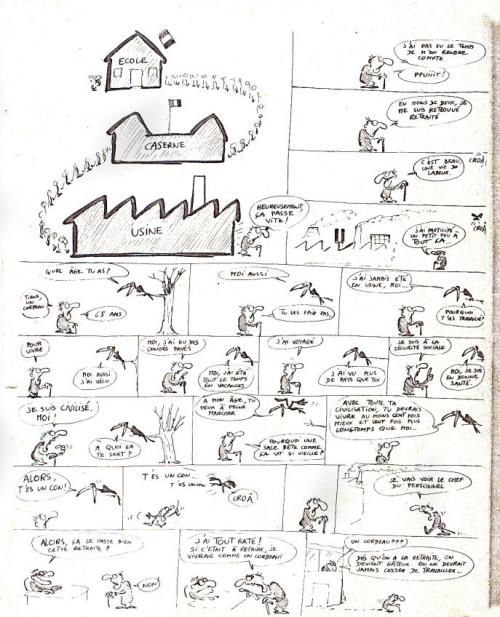 ECOLE
CASERNE
USINE
HEUREUSEMENT,
ÇA PASSE
VITE!
J'AI PAS EU LE TEMPS
DE M'EN RENDRE
COMPTE
PEUIIIT!
EN MOINS DE DEUX, JE
ME SUIS RETROUVÉ
RETRAITÉ
C'EST BEAU
UNE VIE DE
LABEUR
CROÂ
J'AI PARTICIPÉ
UN PETIT PEU À
TOUT ÇA...
CROÂ
QUEL ÂGE TU AS?
TIENS,
UN
CORBEAU
65 ANS
MOI AUSSI
TU LES FAIS PAS.
J'AI JAMAIS ÉTÉ
EN USINE, MOI...
POURQUOI
T'AS TRAVAILLÉ?
POUR
VIVRE
MOI AUSSI
J'AI VÉCU
MOI, J'AI EU DES
CONGÉS PAYÉS
MOI, J'AI ÉTÉ
TOUT LE TEMPS
EN VACANCES
J'AI VOYAGÉ
J'AI VU PLUS
DE PAYS QUE TOI
JE SUIS À LA
SÉCURITÉ SOCIALE
MOI, JE SUIS
EN BONNE
SANTÉ.
JE SUIS CIVILISÉ,
MOI!
À QUOI ÇA
TE SERT?
À MON ÂGE, TU
PEUX À PEINE
MARCHER
POURQUOI UNE
SALE BÊTE COMME
ÇA VIT SI VIEILLE?
AVEC TOUTE TA
CIVILISATION, TU DEVRAIS
VIVRE AU MOINS CENT FOIS
MIEUX ET CENT FOIS PLUS
LONGTEMPS QUE MOI...
ALORS,
T'ES UN CON!
T'ES UN CON...
T'ES UN CON
CROÂ
JE VAIS VOIR LE CHEF
DU PERSONNEL
ALORS, ÇA SE PASSE BIEN
CETTE RETRAITE?
NON!
J'AI TOUT RATÉ!
SI C'ÉTAIT À REFAIRE, JE
VIVRAIS COMME UN CORBEAU!
UN CORBEAU???
DÈS QU'ON A LA RETRAITE, ON
DEVIENT GÂTEUX. ON NE DEVRAIT
JAMAIS CESSER DE TRAVAILLER...